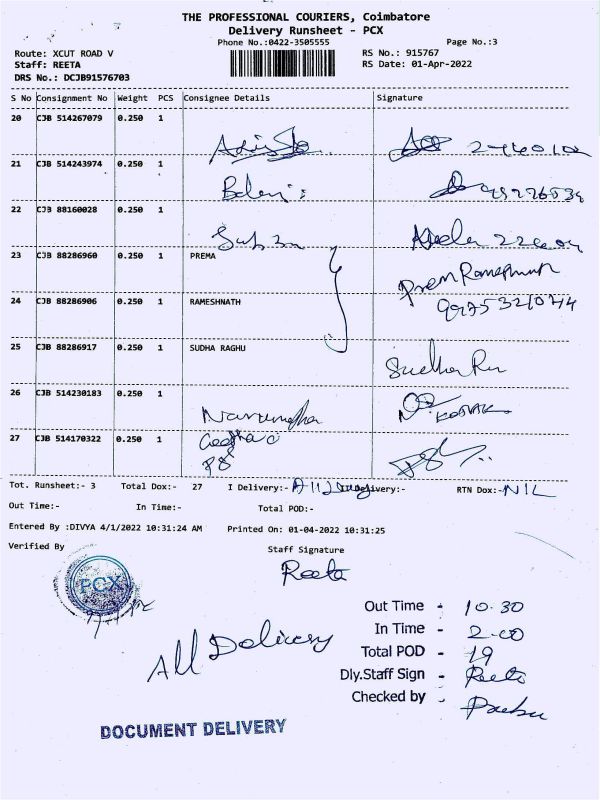 THE PROFESSIONAL COURIERS, Coimbatore
Delivery Runsheet - PCX
Phone No.:0422-3505555 Page No.:3
Route: XCUT ROAD V RS No.: 915767
Staff: REETA RS Date: 01-Apr-2022
DRS No.: DCJB91576703
S No Consignment No Weight PCS Consignee Details Signature
20 CJB 514267079 0.250 1
21 CJB 514243974 0.250 1
22 CJB 88160028 0.250 1
23 CJB 88286960 0.250 1 PREMA
24 CJB 88286906 0.250 1 RAMESHNATH
25 CJB 88286917 0.250 1 SUDHA RAGHU
26 CJB 514230183 0.250 1
27 CJB 514170322 0.250 1
Tot. Runsheet:- 3 Total Dox:- 27 I Delivery:- All RTN Dox:- NIL
Out Time:- In Time:- Total POD:-
Entered By :DIVYA 4/1/2022 10:31:24 AM Printed On: 01-04-2022 10:31:25
Verified By Staff Signature
PCX Reeta
Out Time - 10.30
In Time - 2.00
Total POD - 19
All Delivery Dly.Staff Sign - Reeta
Checked by -
DOCUMENT DELIVERY